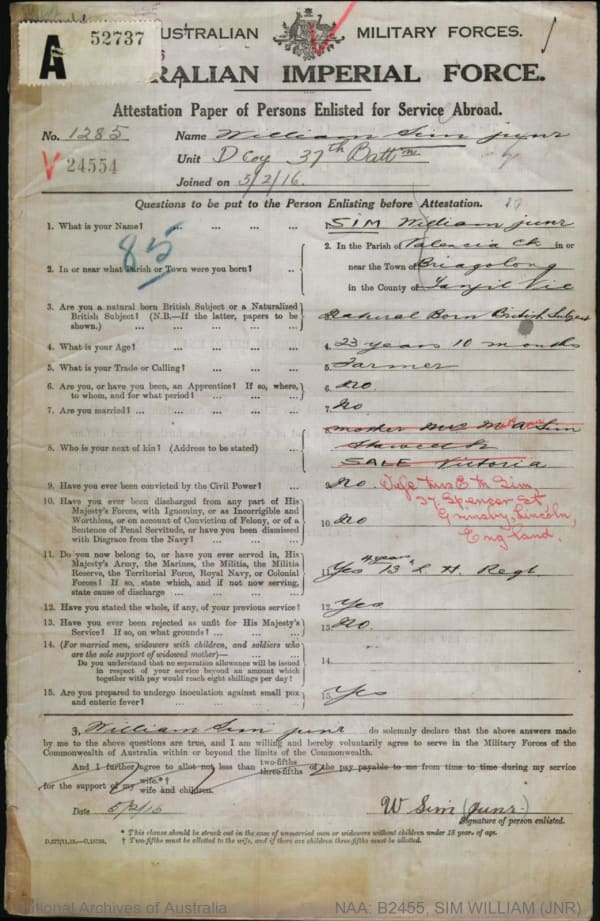 A 52737
AUSTRALIAN MILITARY FORCES.
RALIAN IMPERIAL FORCE.
Attestation Paper of Persons Enlisted for Service Abroad.
No. 1285 Name William Sim junr
24554 Unit D Coy 37th Battn
Joined on 5/2/16.
Questions to be put to the Person Enlisting before Attestation.
1. What is your Name? ... ... ... ... 1. SIM William junr
85
2. In or near what Parish or Town were you born? .. 2. In the Parish of Valencia Ck in or
near the Town of Briagolong
in the County of Tanjil Vic
3. Are you a natural born British Subject or a Naturalized
British Subject? (N.B.—If the latter, papers to be
shown.) ... ... ... ... ... 3. Natural Born British Subject
4. What is your Age? ... ... ... ... 4. 23 years 10 months
5. What is your Trade or Calling? ... ... ... 5. Farmer
6. Are you, or have you been, an Apprentice? If so, where,
to whom, and for what period? ... ... ... 6. No.
7. Are you married? ... ... ... ... ... 7. No
8. Who is your next of kin? (Address to be stated) ... 8. mother Mrs M A Sim
SALE Victoria
9. Have you ever been convicted by the Civil Power? ... 9. No. Wife Mrs E. M. Sim
37 Spencer St
Grimsby, Lincoln,
England.
10. Have you ever been discharged from any part of His
Majesty's Forces, with Ignominy, or as Incorrigible and
Worthless, or on account of Conviction of Felony, or of a
Sentence of Penal Servitude, or have you been dismissed
with Disgrace from the Navy? ... ... ... 10. No
11. Do you now belong to, or have you ever served in, His
Majesty's Army, the Marines, the Militia, the Militia
Reserve, the Territorial Force, Royal Navy, or Colonial
Forces? If so, state which, and if not now serving,
state cause of discharge ... ... ... ... 11. Yes 4 years 13th L. H. Regt
12. Have you stated the whole, if any, of your previous service? 12. Yes
13. Have you ever been rejected as unfit for His Majesty's
Service? If so, on what grounds? ... ... 13. No.
14. (For married men, widowers with children, and soldiers who
are the sole support of widowed mother)— ... ...
Do you understand that no separation allowance will be issued
in respect of your service beyond an amount which
together with pay would reach eight shillings per day? 14.
15. Are you prepared to undergo inoculation against small pox
and enteric fever? ... ... ... ... 15. Yes
I, William Sim junr do solemnly declare that the above answers made
by me to the above questions are true, and I am willing and hereby voluntarily agree to serve in the Military Forces of the
Commonwealth of Australia within or beyond the limits of the Commonwealth.
And I further agree to allot not less than two-fifths three-fifths of the pay payable to me from time to time during my service
for the support of my wife.*† wife and children.
Date 5/2/16 W Sim (junr)
Signature of person enlisted.
* This clause should be struck out in the case of unmarried men or widowers without children under 18 years of age.
D.277/11.15.—C.15738. † Two-fifths must be allotted to the wife, and if there are children three-fifths must be allotted.
National Archives of Australia NAA: B2455, SIM WILLIAM (JNR)